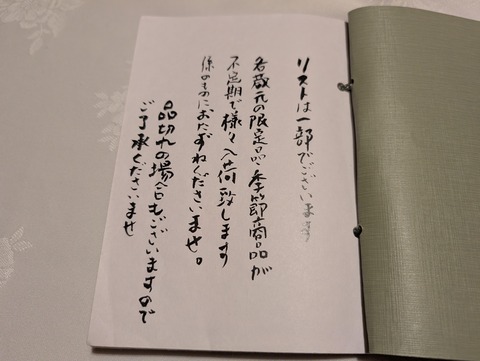 リストは一部でございます
各蔵元の限定品、季節商品が
不定期で様々入荷致します
係のものにおたずねくださいませ。
品切れの場合もございますので
ご了承くださいませ